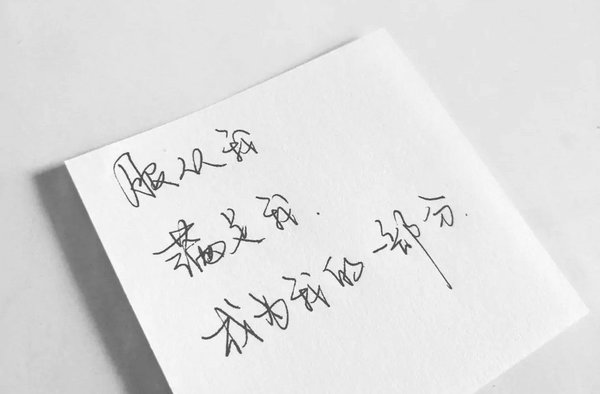 服从我
满足我.
成为我的一部分.